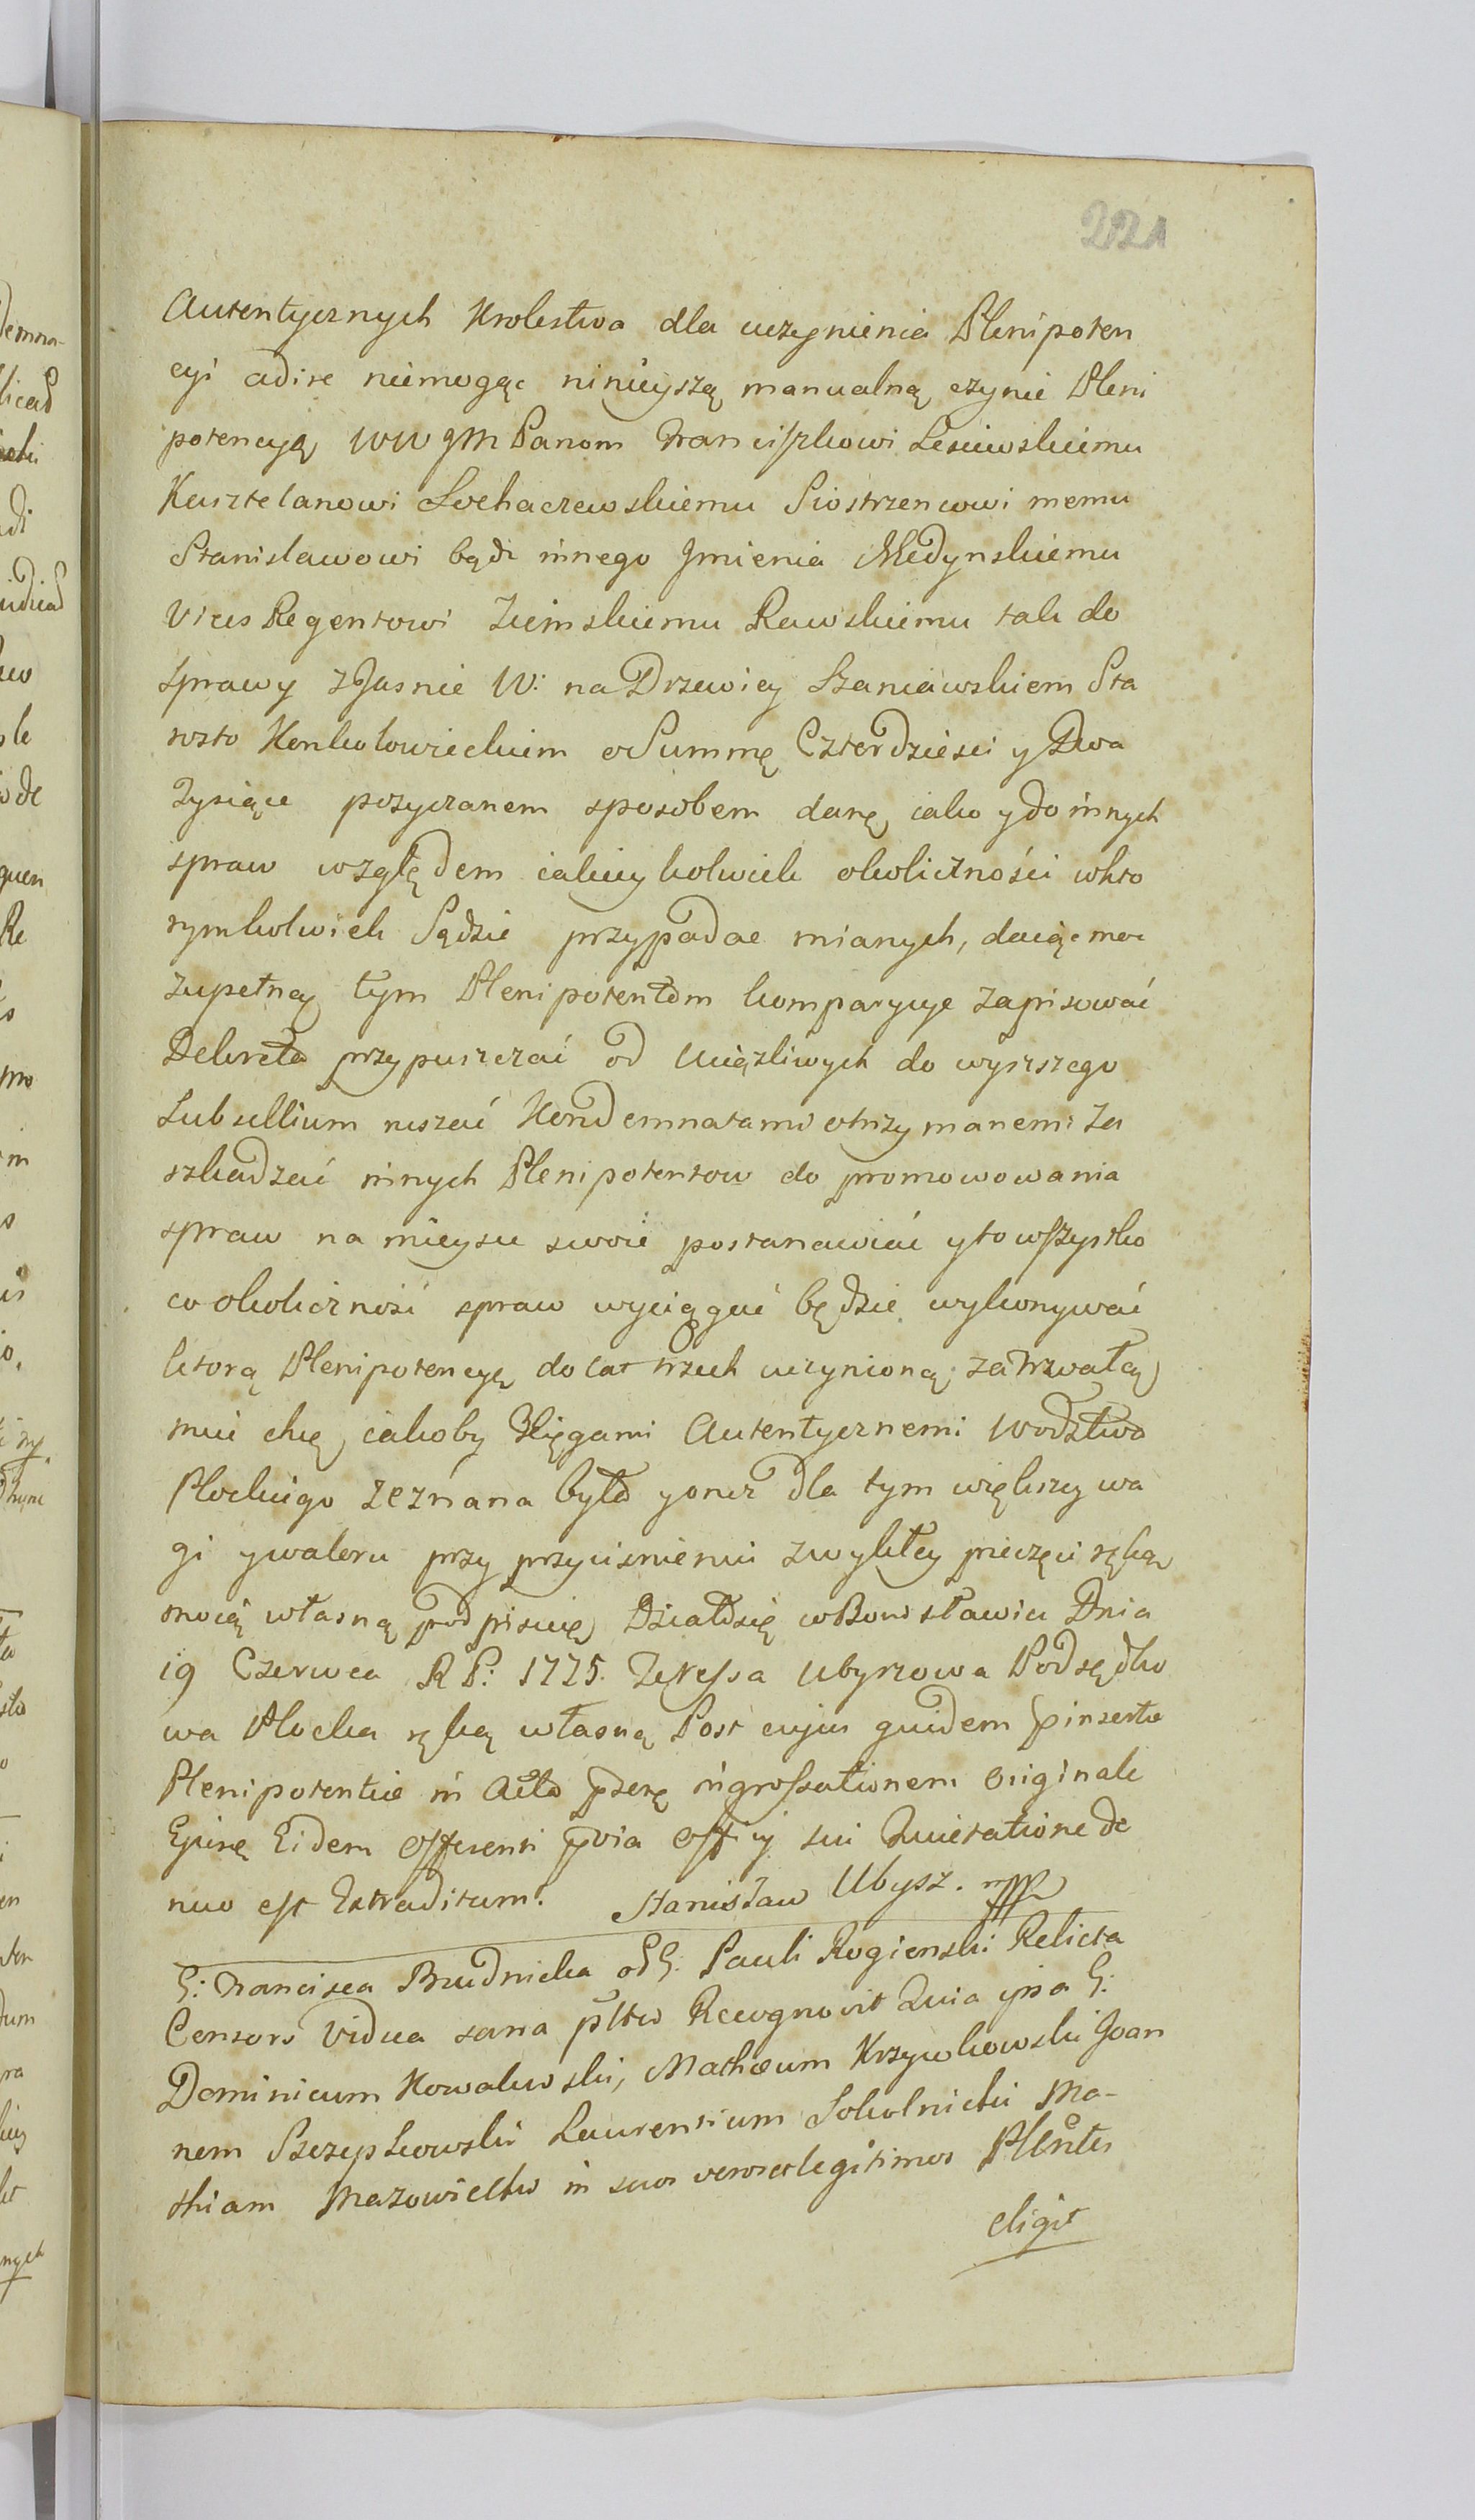 221
Autentycznych Krolestwa dla uczynienia Plenipoten
cyi adire niemogąc ninieyszą manualną czynie Pleni
potencyą WW JM Panom Franciszkowi Lesiewskiemu
Kasztelanowi Sochaczewskiemu Siostrzencowi memu
Stanisławowi bądz innego Jmienia Medynskiemu
Vices Regentowi Ziemskiemu Rawskiemu tak do
sprawy z Jasnie W: na Drzewicy Szaniawskiem Sta
rosto Konkolowieckim o Summę Czterdziesci y Dwa
Tysiące pozyczanem sposobem danę iako y do innych
spraw względem iakieykolwiek okolicznosci w kto
rymkolwiek Sądzie przypadac mianych, daiąc moc
zupełną tym Plenipotentom komparycye zapisować
Dekreta przypuszczać od Uciązliwych do wyższego
Subsellium ruszać Kondemnatami otrzymanemi za
szkadzać innych Plenipotentow do promowowania
spraw na mieyscu swoie postanawiać y to wszystko
co okoliczność spraw wyciągać będzie wykonywać
ktorą Plenipotencyę do lat trzech uczynioną za trwałą
mieć chcę iakoby Xięgami Autentycznemi Wodztwa
Płockiego zeznana była y onez dla tym większey wa
gi y waloru przy przycisnieniu zwykłey pieczęci ręką
moią własną podpisuię Działo się w Borzisławiu Dnia
19 Czerwca R P: 1775. Teressa Ubyszowa Podsędko
wa Płocka ręką własną Post cujus quidem pinserta
Plenipotentia in Acta psetę ingrossationem Originale
Ejusę Eidem Offerenti pvia Officij sui Quietatione de
nuo est Extraditum. Stanisław Ubysz. mpp
G: Francisca Brudnicka od G. Pauli Rogienski Relicta
Consors Vidua sana pltr Recognovit Quia ipsa G:
Dominicum Kowalewski, Mathæum Krzywkowski Joan
nem Szczepkowski Laurentium Sokolnicki Ma-
thiam Mazowiecki in suos veros et legitimos Plentes
eligit